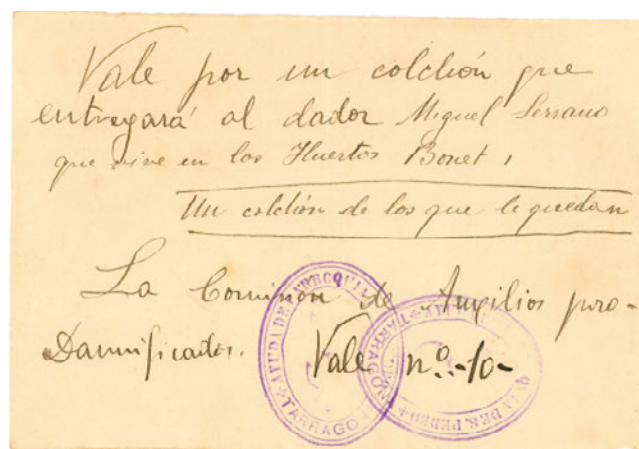 Vale por un colchón que
entregará al dador Miguel Serrano
que vive en los Huertos Bonet,
Un colchón de los que le quedan
La Comisión de Auxilios pro-
Damnificados. Vale nº-10-
TARRAGO